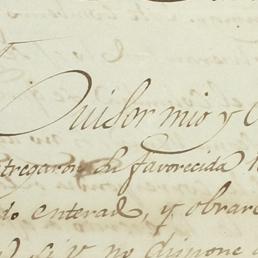 Qui Sor mio y
ntregaron su favorecida
do enterad, y obrare
si V no dispone